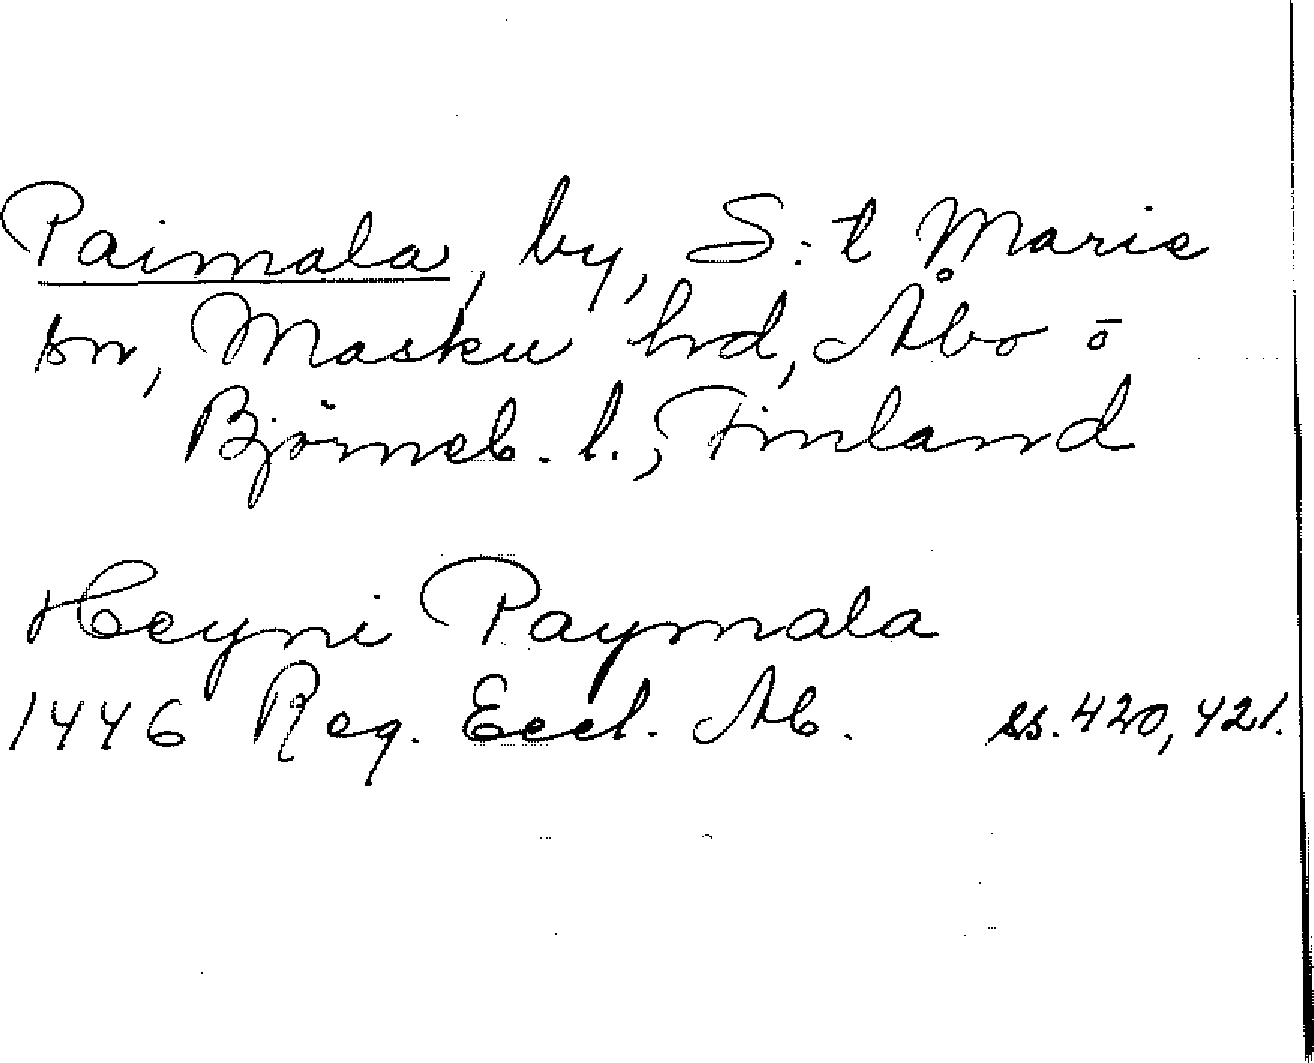 Paimala, by, S:t Marie
sn, Masku hrd, Åbo o
Björneb. l., Finland
Heyni Paymala
1446 Reg. Eccl. Ab. ss. 420, 421.